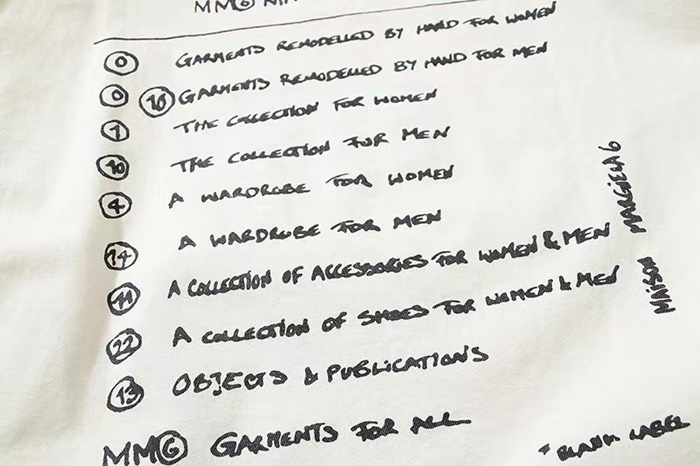 MM⑥
⓪ GARMENTS REMODELLED BY HAND FOR WOMEN
⓪ ⑩ GARMENTS REMODELLED BY HAND FOR MEN
① THE COLLECTION FOR WOMEN
⑩ THE COLLECTION FOR MEN
④ A WARDROBE FOR WOMEN
⑭ A WARDROBE FOR MEN
⑪ A COLLECTION OF ACCESSORIES FOR WOMEN & MEN
㉒ A COLLECTION OF SHOES FOR WOMEN & MEN
⑬ OBJECTS & PUBLICATIONS
MM⑥ GARMENTS FOR ALL
MAISON MARGIELA 6
* BLANK LABEL